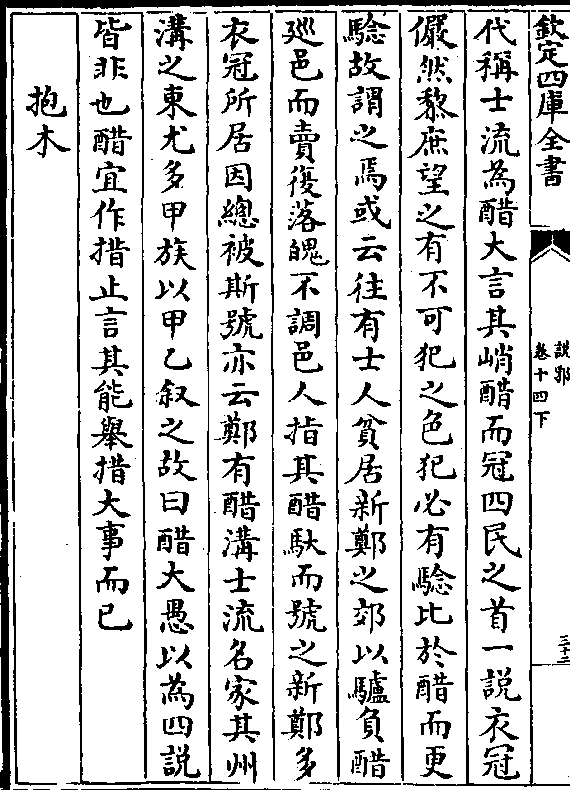 欽定四庫全書
說郛
卷十四下
三十二
代稱士流為醋大言其峭醋而冠四民之首一說衣冠
儼然黎庶望之有不可犯之色犯必有驗比於醋而更
驗故謂之焉或云往有士人貧居新鄭之郊以驢負醋
廵邑而賣復落魄不調邑人指其醋䭾而號之新鄭多
衣冠所居因總被斯號亦云鄭有醋溝士流名家其州
溝之東尤多甲族以甲乙叙之故曰醋大愚以為四說
皆非也醋宜作措止言其能舉措大事而已
抱木